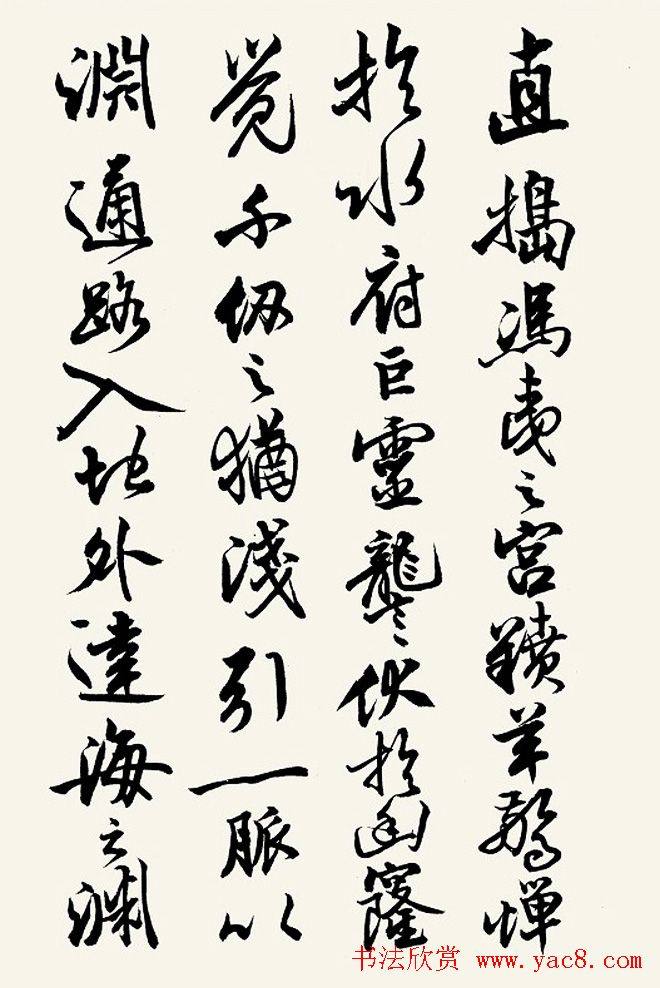 直搗馮夷之宫羵羊驚惮
於水府巨靈讋伏於幽窿
覺千仞之猶淺引一脈以
淵通路入地外達海之淵
书法欣赏 www.yac8.com